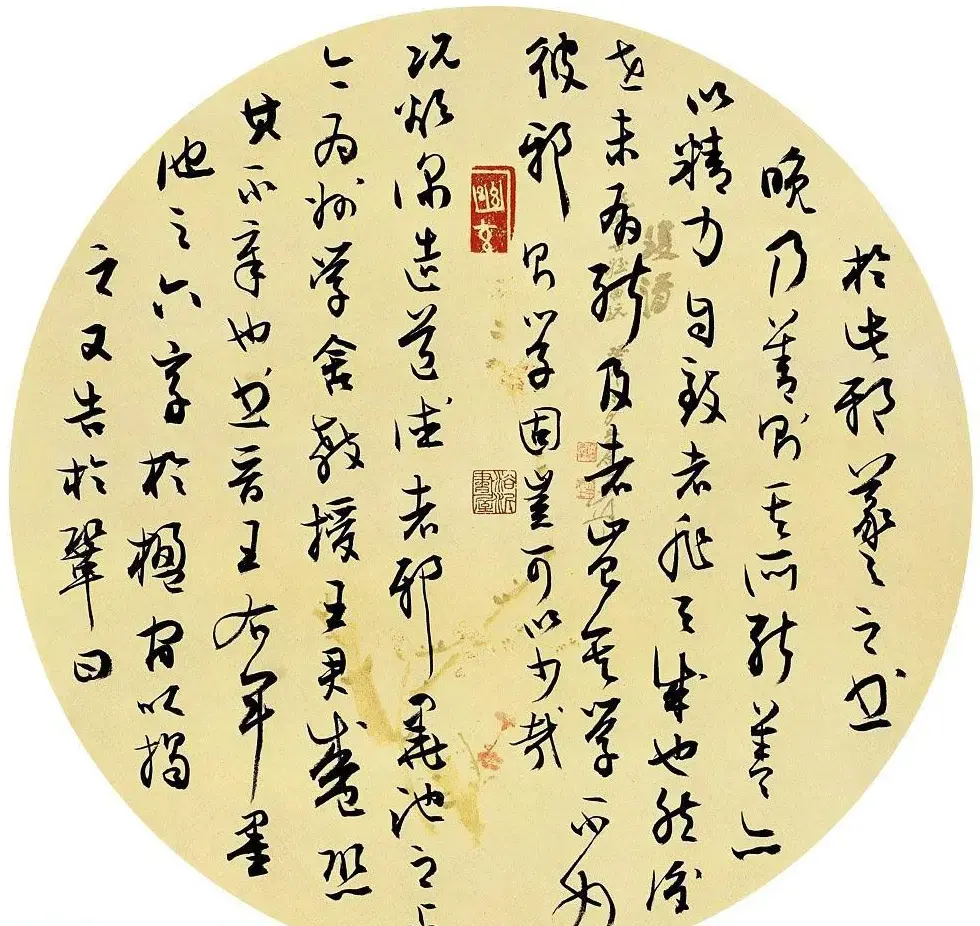 於此邪羲之之書
晚乃善則其所能蓋亦
以精力自致者非天成也然後
世未有能及者豈其學不如
彼邪則學固豈可以少哉
況欲深造道德者邪墨池之上
今為州學舍教授王君盛恐
其不章也書晉王右軍墨
池之六字於楹間以揭
之又告於鞏曰
幽玄
浴沂書屋